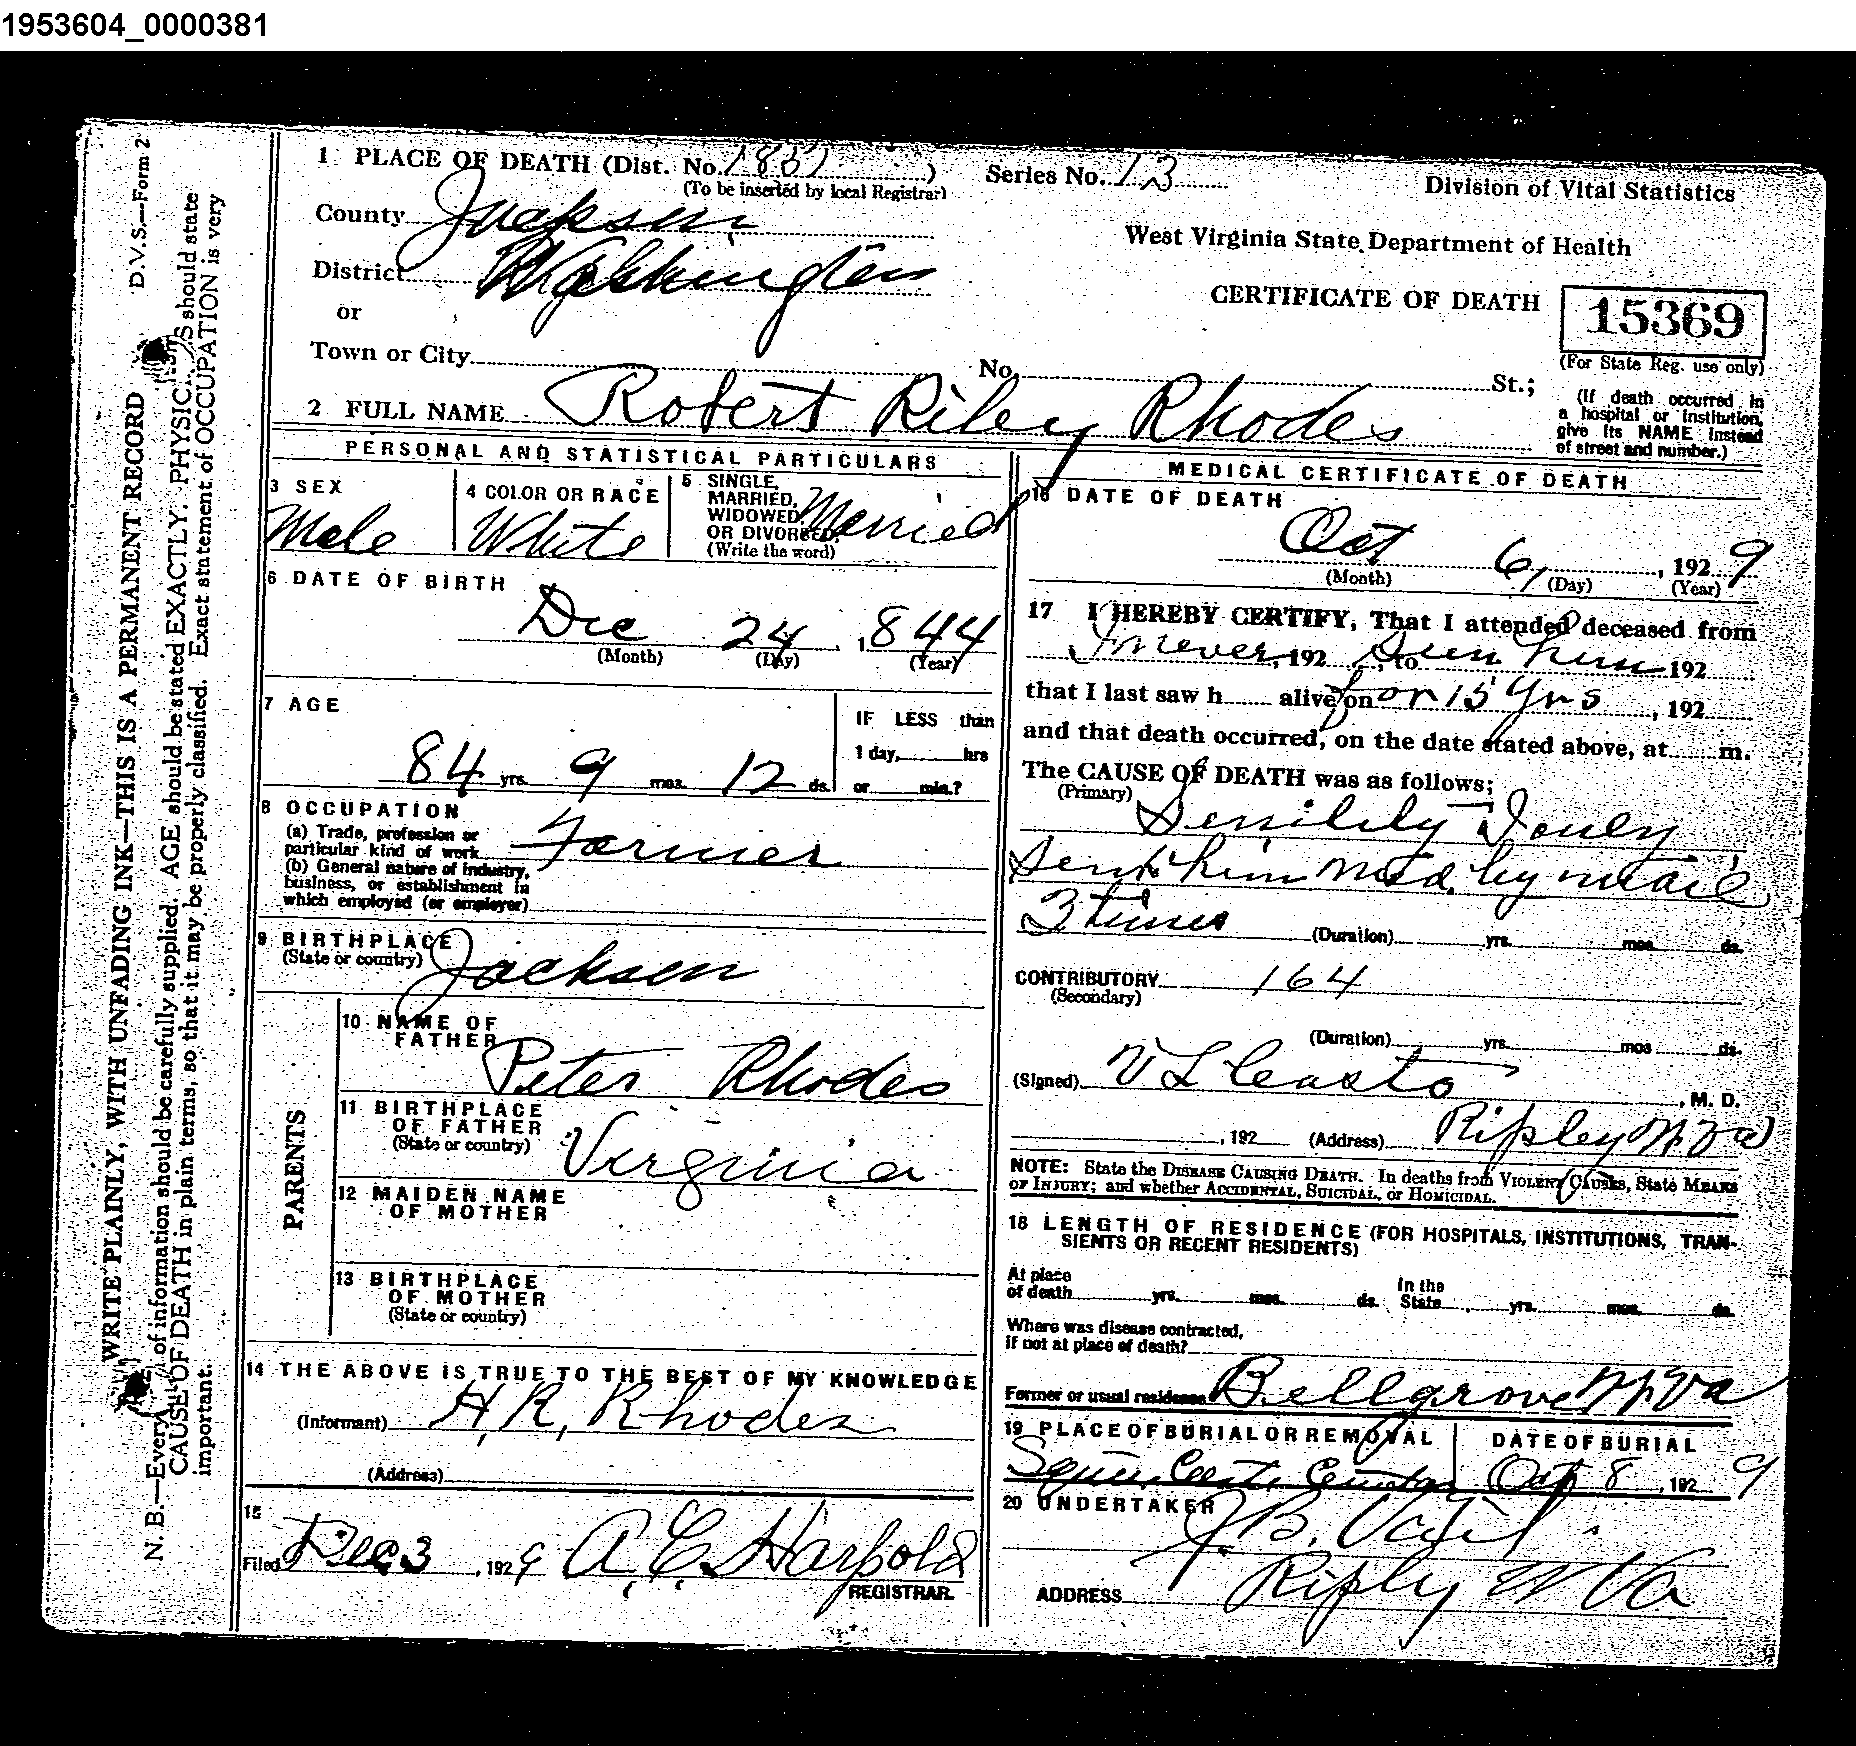 1953604_0000381
D.V.S.—Form 2
WRITE PLAINLY, WITH UNFADING INK—THIS IS A PERMANENT RECORD
N. B.—Every of information should be carefully supplied. AGE should be stated EXACTLY. PHYSIC S should state
CAUSE OF DEATH in plain terms, so that it may be properly classified. Exact statement of OCCUPATION is very
important.
1 PLACE OF DEATH (Dist. No. 1851) Series No. 13
(To be inserted by local Registrar)
Division of Vital Statistics
County Jackson
West Virginia State Department of Health
District Washington
or
CERTIFICATE OF DEATH 15369
(For State Reg. use only)
Town or City No. St.;
(If death occurred in
a hospital or institution,
give its NAME instead
of street and number.)
2 FULL NAME Robert Riley Rhodes
PERSONAL AND STATISTICAL PARTICULARS
3 SEX
Male
4 COLOR OR RACE
White
5 SINGLE,
MARRIED,
WIDOWED,
OR DIVORCED
(Write the word)
Married
6 DATE OF BIRTH
Dec 24, 1844
(Month) (Day) (Year)
7 AGE
84 yrs. 9 mos. 12 ds.
IF LESS than
1 day, hrs
or min.?
8 OCCUPATION
(a) Trade, profession or
particular kind of work Farmer
(b) General nature of industry,
business, or establishment in
which employed (or employer)
9 BIRTHPLACE
(State or country) Jackson
PARENTS
10 NAME OF
FATHER
Peter Rhodes
11 BIRTHPLACE
OF FATHER
(State or country) Virginia
12 MAIDEN NAME
OF MOTHER
13 BIRTHPLACE
OF MOTHER
(State or country)
14 THE ABOVE IS TRUE TO THE BEST OF MY KNOWLEDGE
(Informant) H. R. Rhodes
(Address)
15
Filed Dec 3, 1929 A. C. Harpold
REGISTRAR
MEDICAL CERTIFICATE OF DEATH
16 DATE OF DEATH
Oct 6, 1929
(Month) (Day) (Year)
17 I HEREBY CERTIFY, That I attended deceased from
I never, 192 , to Seen him 192
that I last saw h alive on for 15 yrs , 192
and that death occurred, on the date stated above, at m.
The CAUSE OF DEATH was as follows;
(Primary) Senility I only
sent him Med. by mail
3 times (Duration) yrs. mos. ds.
CONTRIBUTORY 164
(Secondary)
(Duration) yrs. mos ds.
(Signed) V L Casto, M. D.
, 192 (Address) Ripley W Va
NOTE: State the DISEASE CAUSING DEATH. In deaths from VIOLENT CAUSES, State MEANS
OF INJURY; and whether ACCIDENTAL, SUICIDAL, or HOMICIDAL.
18 LENGTH OF RESIDENCE (FOR HOSPITALS, INSTITUTIONS, TRAN-
SIENTS OR RECENT RESIDENTS)
At place
of death yrs. mos. ds. In the
State yrs. mos. ds.
Where was disease contracted,
if not at place of death?
Former or usual residence Bellgrove W. Va
19 PLACE OF BURIAL OR REMOVAL
DATE OF BURIAL
Oct 8, 1929
20 UNDERTAKER
J. B. Vail
ADDRESS Riply W Va